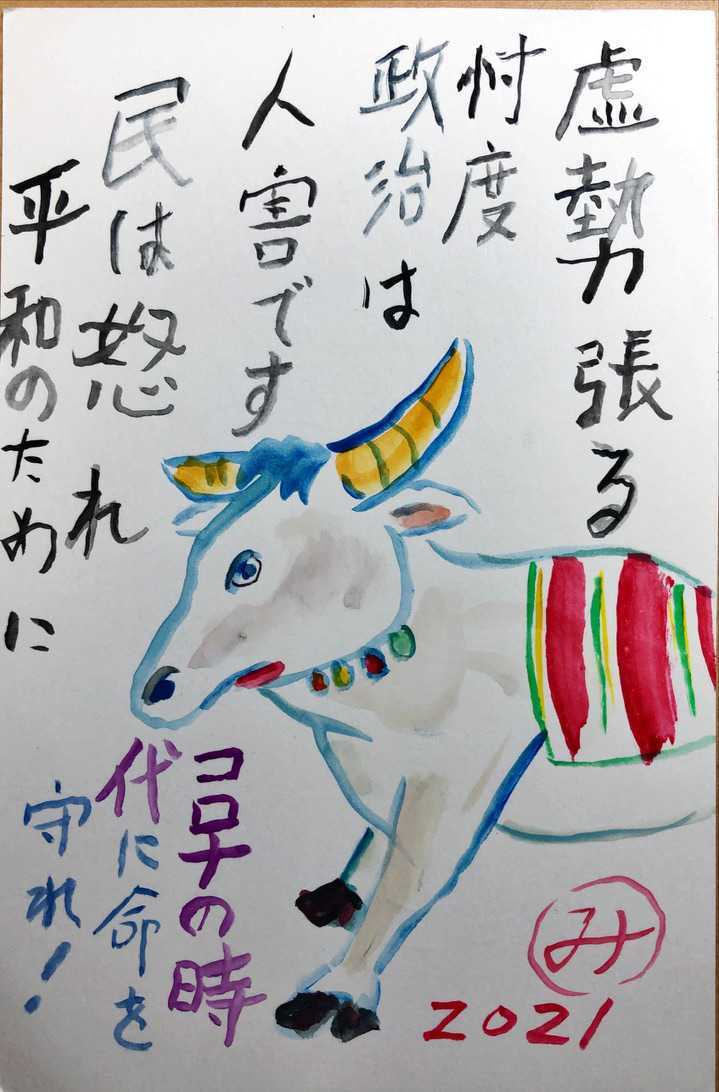 虚勢張る
忖度
政治は
人害です
民は怒れ
平和のために
コロナの時
代に命を
守れ!
み
2021